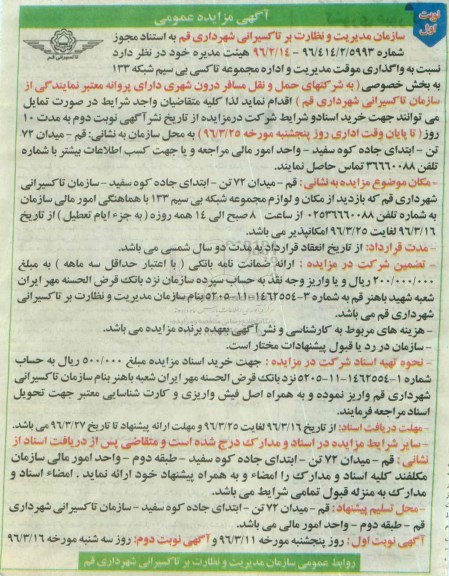 آگهی مزایده عمومی
نوبت اول
سازمان مدیریت و نظارت بر تاکسیرانی شهرداری قم به استناد مجوز
شماره ۹۶/۴۱۴/۲/۵۹۹۳ - ۹۶/۲/۱۴ هیئت مدیره خود در نظر دارد
نسبت به واگذاری موقت مدیریت و اداره مجموعه تاکسی بی سیم شبکه ۱۳۳
به بخش خصوصی ( به شرکتهای حمل و نقل مسافر درون شهری دارای پروانه معتبر نمایندگی از
سازمان تاکسیرانی شهرداری قم ) اقدام نماید لذا کلیه متقاضیان واجد شرایط در صورت تمایل
می توانند جهت خرید اسنادو شرایط شرکت درمزایده از تاریخ نشر آگهی نوبت دوم به مدت ۱۰
روز ( تا پایان وقت اداری روز پنجشنبه مورخه ۹۶/۳/۲۵ ) به محل سازمان به نشانی: قم - میدان ۷۲
تن - ابتدای جاده کوه سفید - واحد امور مالی مراجعه و یا جهت کسب اطلاعات بیشتر با شماره
تلفن ۳۶۶۶۰۰۸۸ تماس حاصل نمایند.
- مکان موضوع مزایده به نشانی: قم - میدان ۷۲ تن - ابتدای جاده کوه سفید - سازمان تاکسیرانی
شهرداری قم که بازدید از مکان و لوازم مجموعه شبکه بی سیم ۱۳۳ با هماهنگی امور مالی سازمان
به شماره تلفن ۰۲۵۳۶۶۶۰۰۸۸ از ساعت ۸ صبح الی ۱۴ همه روزه ( به جزء ایام تعطیل ) از تاریخ
۹۶/۳/۱۶ لغایت ۹۶/۳/۲۵ امکانپذیر می باشد.
- مدت قرارداد: از تاریخ انعقاد قرارداد به مدت دو سال شمسی می باشد.
- تضمین شرکت در مزایده : ارائه ضمانت نامه بانکی ( با اعتبار حداقل سه ماهه ) به مبلغ
۲۰۰/۰۰۰/۰۰۰ ریال و یا واریز وجه نقد به حساب سپرده سازمان نزد بانک قرض الحسنه مهر ایران
شعبه شهید باهنر قم به شماره ۳-۱۴۶۲۵۵۴-۱۱-۵۲۰۵ بنام سازمان مدیریت و نظارت بر تاکسیرانی
شهرداری قم می باشد.
- هزینه های مربوط به کارشناسی و نشر آگهی بعهده برنده مزایده می باشد.
- سازمان در رد یا قبول پیشنهادات مختار است.
- نحوه تهیه اسناد شرکت در مزایده : جهت خرید اسناد مزایده مبلغ ۵۰۰/۰۰۰ ریال به حساب
شماره ۱-۱۴۶۲۵۵۴-۱۱-۵۲۰۵ نزد بانک قرض الحسنه مهر ایران شعبه باهنر بنام سازمان تاکسیرانی
شهرداری قم واریز نموده و به همراه اصل فیش واریزی و کارت شناسایی معتبر جهت تحویل
اسناد مراجعه فرمایند.
- مهلت دریافت اسناد: از تاریخ ۹۶/۳/۱۶ لغایت ۹۶/۳/۲۵ و مهلت ارائه پیشنهاد تا تاریخ ۹۶/۳/۲۷ می باشد.
- سایر شرایط مزایده در اسناد و مدارک درج شده است و متقاضی پس از دریافت اسناد از
نشانی : قم - میدان ۷۲ تن - ابتدای جاده کوه سفید - طبقه دوم - واحد امور مالی سازمان
مکلفند کلیه اسناد و مدارک را امضاء و به همراه پیشنهاد خود ارائه نماید . امضاء اسناد و
مدارک به منزله قبول تمامی شرایط می باشد.
- محل تسلیم پیشنهاد: قم - میدان ۷۲ تن - ابتدای جاده کوه سفید - سازمان تاکسیرانی شهرداری
قم - طبقه دوم - واحد امور مالی می باشد.
آگهی نوبت اول : روز پنجشنبه مورخه ۹۶/۳/۱۱ و آگهی نوبت دوم: روز سه شنبه مورخه ۹۶/۳/۱۶
روابط عمومی سازمان مدیریت و نظارت بر تاکسیرانی شهرداری قم